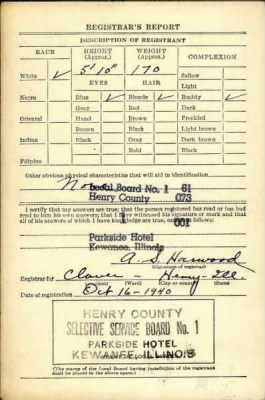 REGISTRAR'S REPORT
DESCRIPTION OF REGISTRANT
RACE HEIGHT (Approx.) WEIGHT (Approx.) COMPLEXION
5' 10" 170
White ✓ EYES HAIR Sallow
Light
Negro Blue ✓ Blonde ✓ Ruddy ✓
Gray Red Dark
Oriental Hazel Brown Freckled
Brown Black Light brown
Indian Black Gray Dark brown
Bald Black
Filipino
Other obvious physical characteristics that will aid in identification
None
Local Board No. 1 61
Henry County 073
I certify that my answers are true; that the person registered has read or has had
read to him his own answers; that I have witnessed his signature or mark and that
all of his answers of which I have knowledge are true, except as follows:
1 001
Parkside Hotel
Kewanee, Illinois
A. S. Harwood
(Signature of registrar)
Registrar for Clover - Henry - Ill.
(Ward) (City or county) (State)
Date of registration Oct 16 - 1940
HENRY COUNTY
SELECTIVE SERVICE BOARD No. 1
PARKSIDE HOTEL
KEWANEE, ILLINOIS
(The stamp of the Local Board having jurisdiction of the registrant
shall be placed in the above space.)